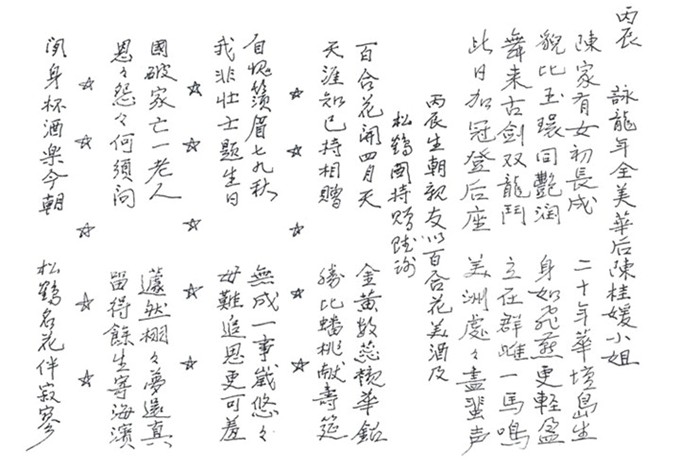 丙辰 詠龍年全美華后陳桂媛小姐
陳家有女初長成 二十年華檀島生
貌比玉環回艷潤 身如飛燕更輕盈
舞来古剑双龍鬥 立在群雌一馬鳴
此日加冠登后座 美洲處々盡蜚声
丙辰生朝親友以百合花美酒及
松鶴圖持贈賦謝
百合花開四月天 金黃数蕊華鈿
天涯知己持相贈 勝比蟠桃献壽筵
自愧鬚眉七九秋 無成一事歲悠々
我非壮士題生日 母難追思更可羞
國破家亡一老人 蘧然栩々夢還真
恩々怨々何須問 留得餘生寄海濱
閑身杯酒楽今朝 松鶴名花伴寂寥